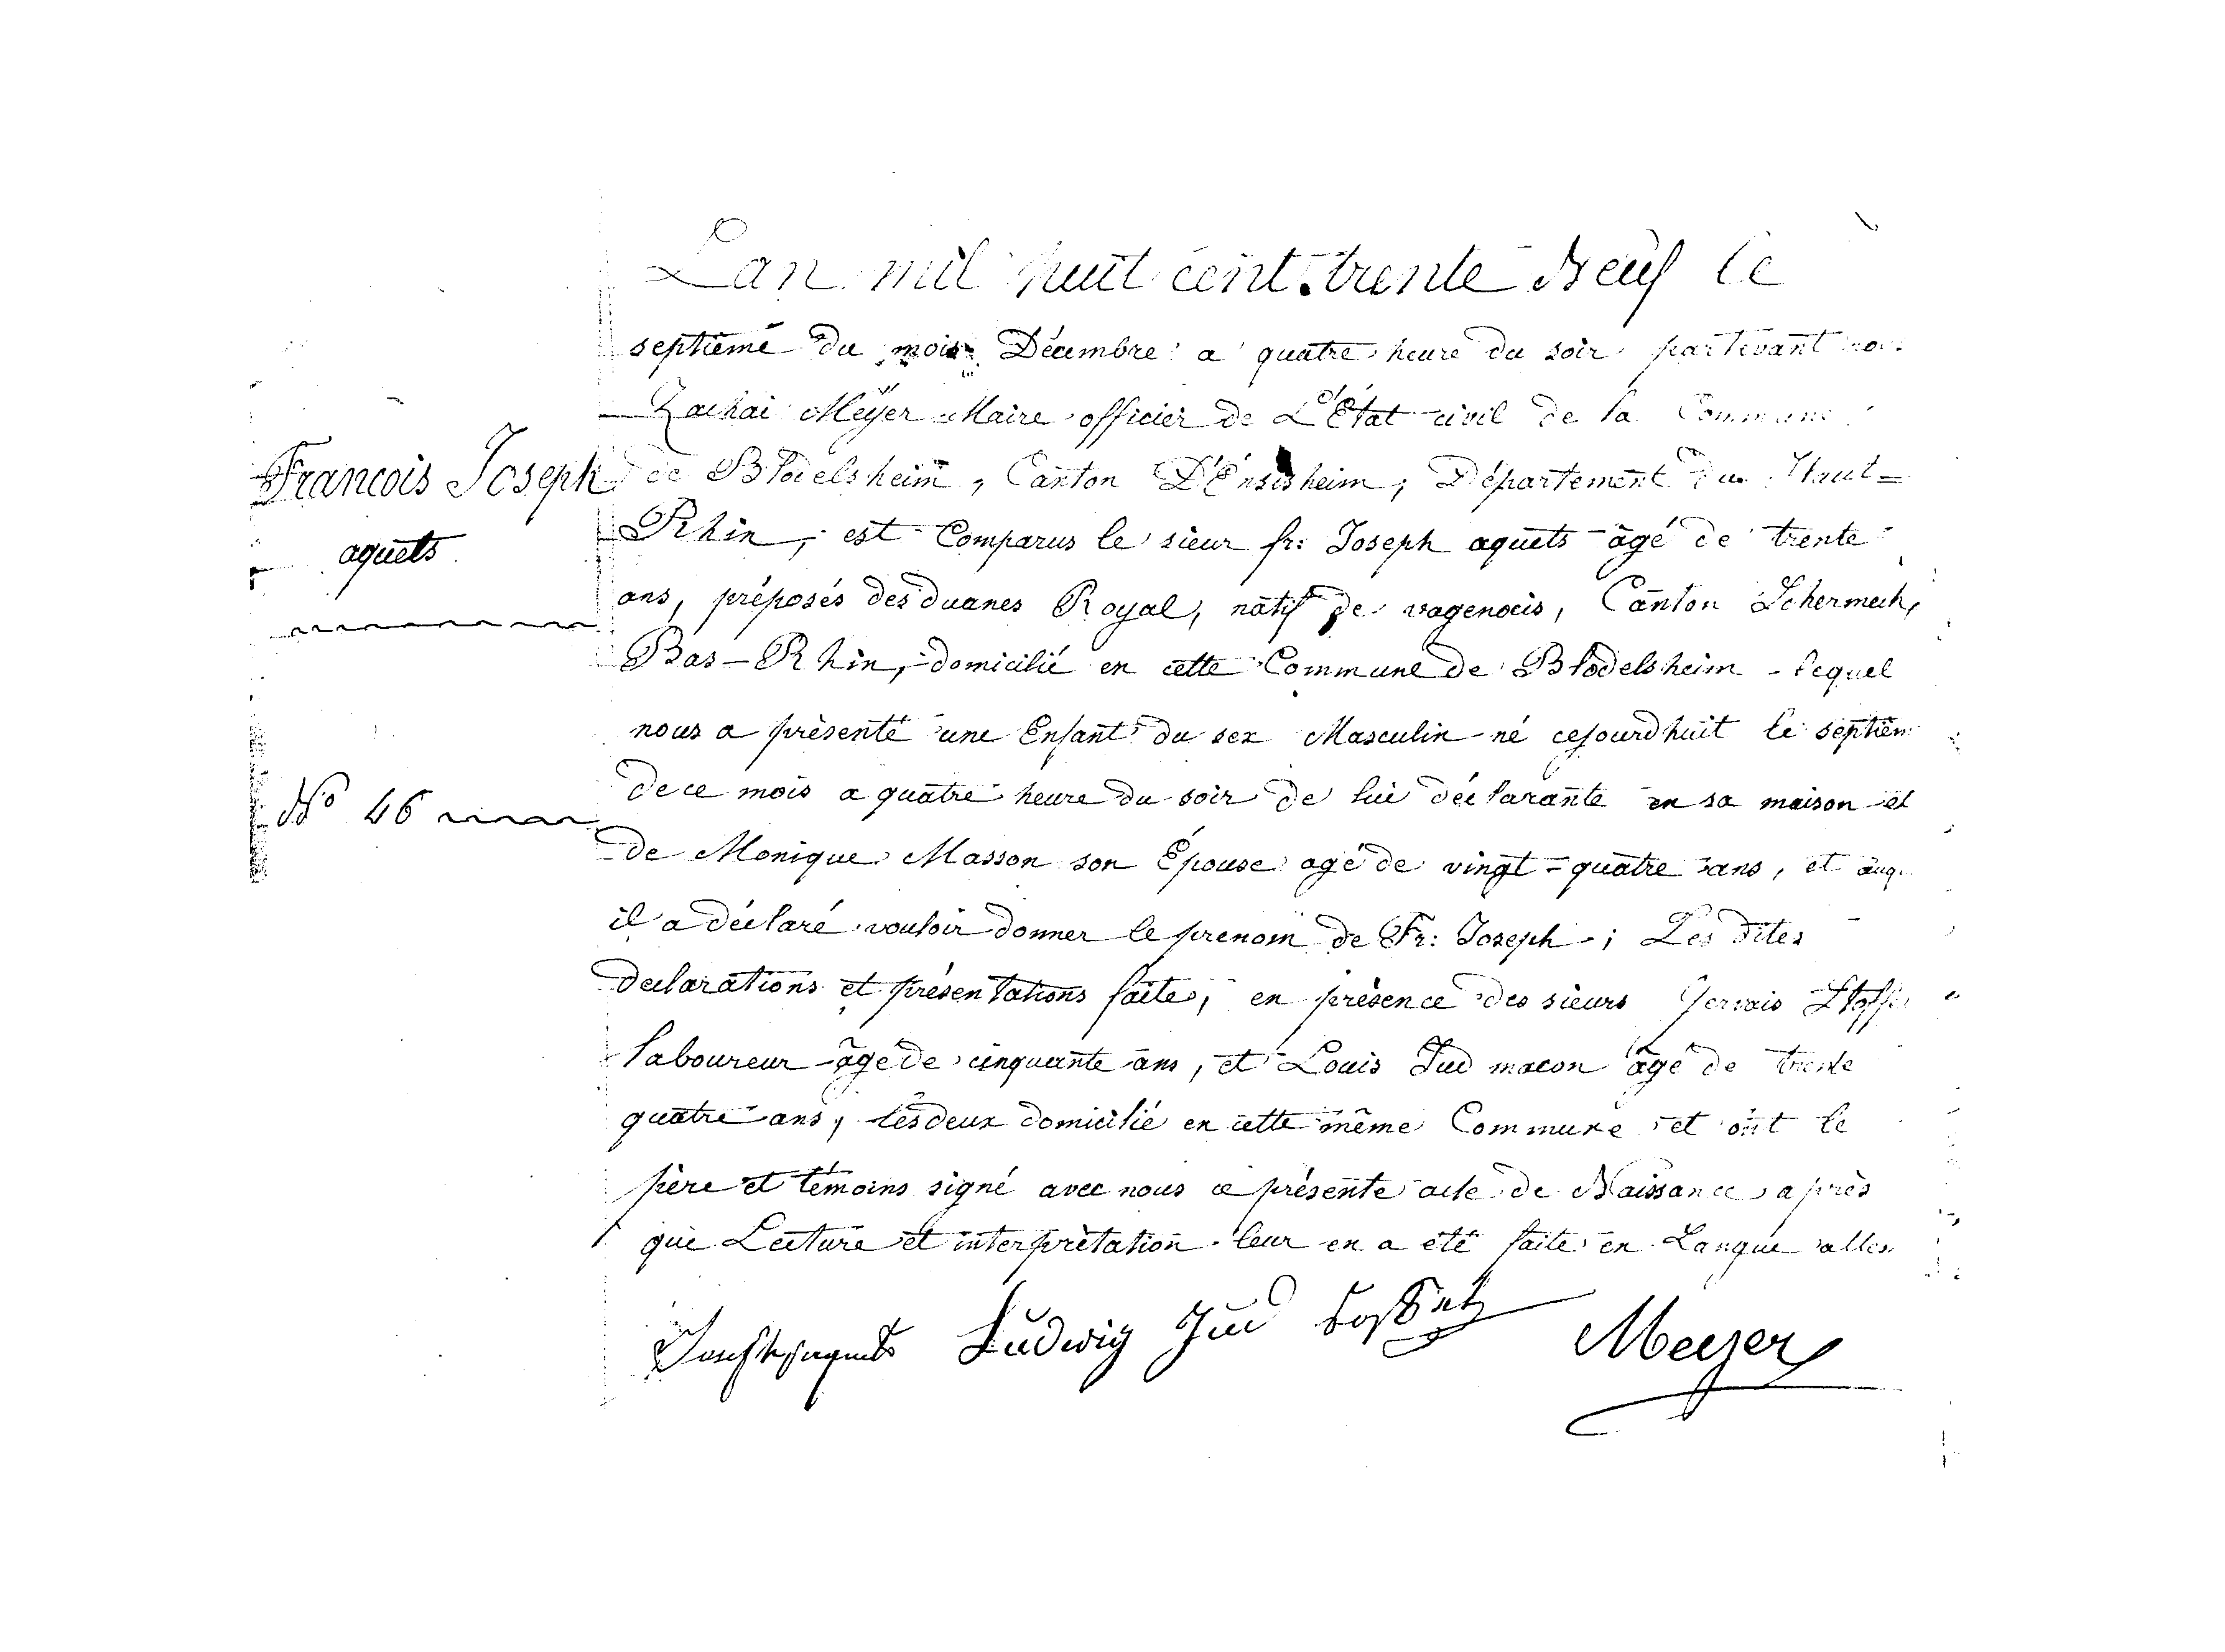 Lan mil huit cent trente Neuf le
septieme du mois Décembre a quatre heure du soir partevant nous
Zachai Meÿer Maire officier de L'État civil de la Commune
François Joseph
de Blodelsheim, Canton D'Ensisheim, Département du Haut=
Rhin, est Comparus le sieur fr: Joseph aquets âgé de trente
aquets
ans, préposés des duanes Royal, natif de vagenocis, Canton Schermeck,
Bas-Rhin, domicilié en cette Commune de Blodelsheim - lequel
nous a présenté une Enfant du sex Masculin né cejourdhuit le septiem
de ce mois a quatre heure du soir de lui déclarante en sa maison et
No 46
de Monique Masson son Épouse agé de vingt=quatre ans, et auq
il a déclaré vouloir donner le prenom de Fr: Joseph; Les dites
declarations et présentations faites, en présence des sieurs Gervais Stoffe
laboureur âgé de cinquante ans, et Louis Jud macon âgé de trente
quatre ans, les deux domicilié en cette même Commune et ont le
père et témoins signé avec nous ce présente acte de Naissance après
que Lecture et interprètation leur en a été faite en Langue alle
Ludwig Jud Meyer